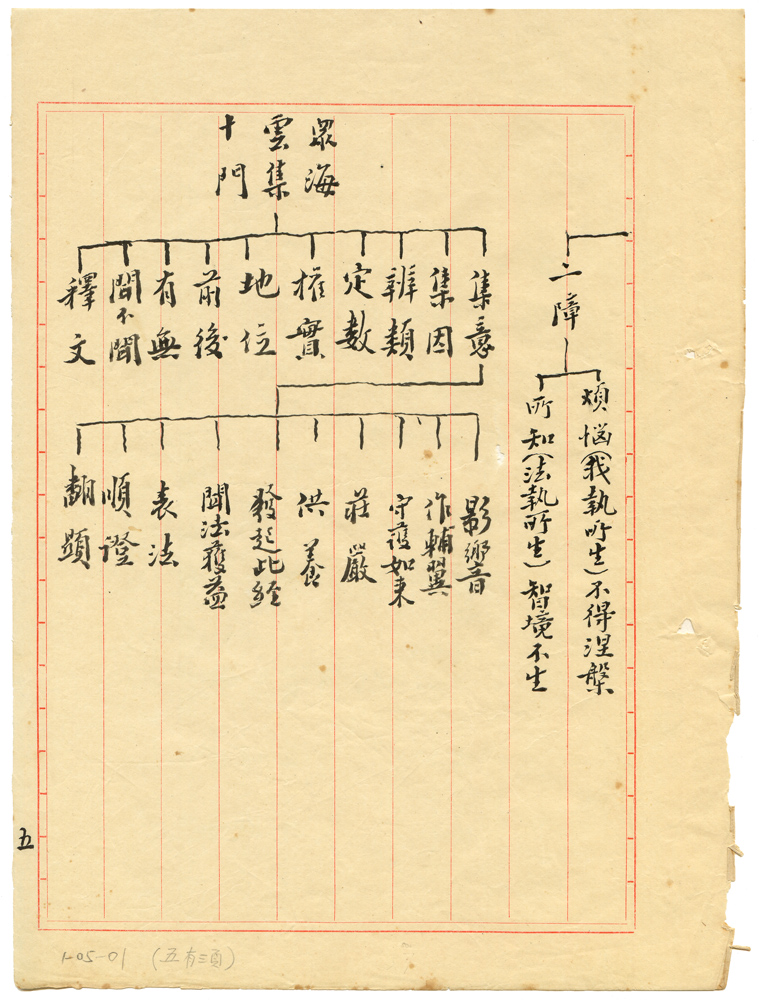 二障
煩惱(我執所生)不得涅槃
所知(法執所生)智境不生
眾海
雲集
十門
集意
集因
辨類
定數
權實
地位
前後
有無
聞不聞
釋文
影響音
作輔翼
守護如來
莊嚴
供養
發起此經
聞法獲益
表法
順證
翻顯
五
1-05-01 (五有三頁)